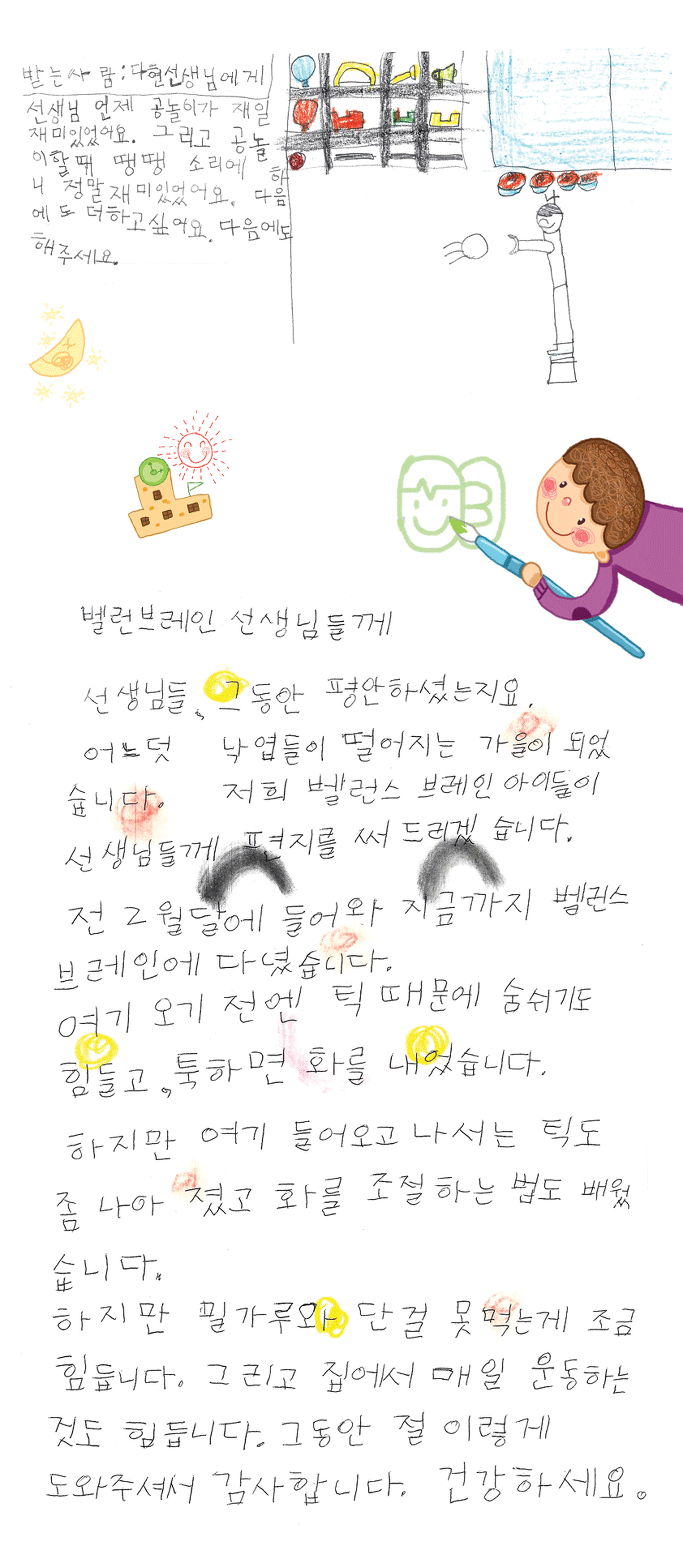 받는사람:다현선생님에게
선생님 언제 공놀이가 재일
재미있었어요. 그리고 공놀
이할때 땡땡 소리에 하
니 정말재미있었어요. 다음
에도 더하고싶어요. 다음에도
해주세요.
벨런브레인 선생님들께
선생님들, 그동안 평안하셨는지요.
어느덧 낙엽들이 떨어지는 가을이 되었
습니다. 저희 벨런스 브레인아이들이
선생님들께 편지를 써 드리겠 습니다.
전 2월달에 들어와 지금까지 벨런스
브레인에 다녔습니다.
여기 오기 전엔 틱 때문에 숨쉬기도
힘들고, 툭하면 화를 내었습니다.
하지만 여기 들어오고나서는 틱도
좀 나아 졌고 화를 조절하는 법도 배웠
습니다.
하지만 필가루와 단걸 못먹는게 조금
힘듭니다. 그리고 집에서 매일 운동하는
것도 힘듭니다. 그동안 절 이렇게
도와주셔서 감사합니다. 건강하세요.